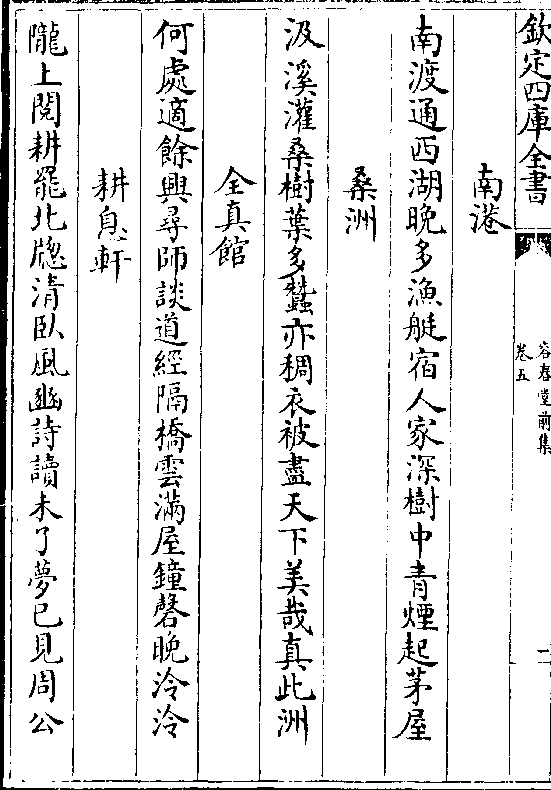 欽定四庫全書
容春堂前集
卷五
二
南港
南渡通西湖晚多漁艇宿人家深樹中青煙起茅屋
桑洲
汲溪灌桑樹葉多蠶亦稠衣被盡天下美哉真此洲
全真館
何處適餘興尋師談道經隔橋雲滿屋鐘磬晚泠泠
耕息軒
隴上閱耕罷北牕清臥風豳詩讀未了夢已見周公